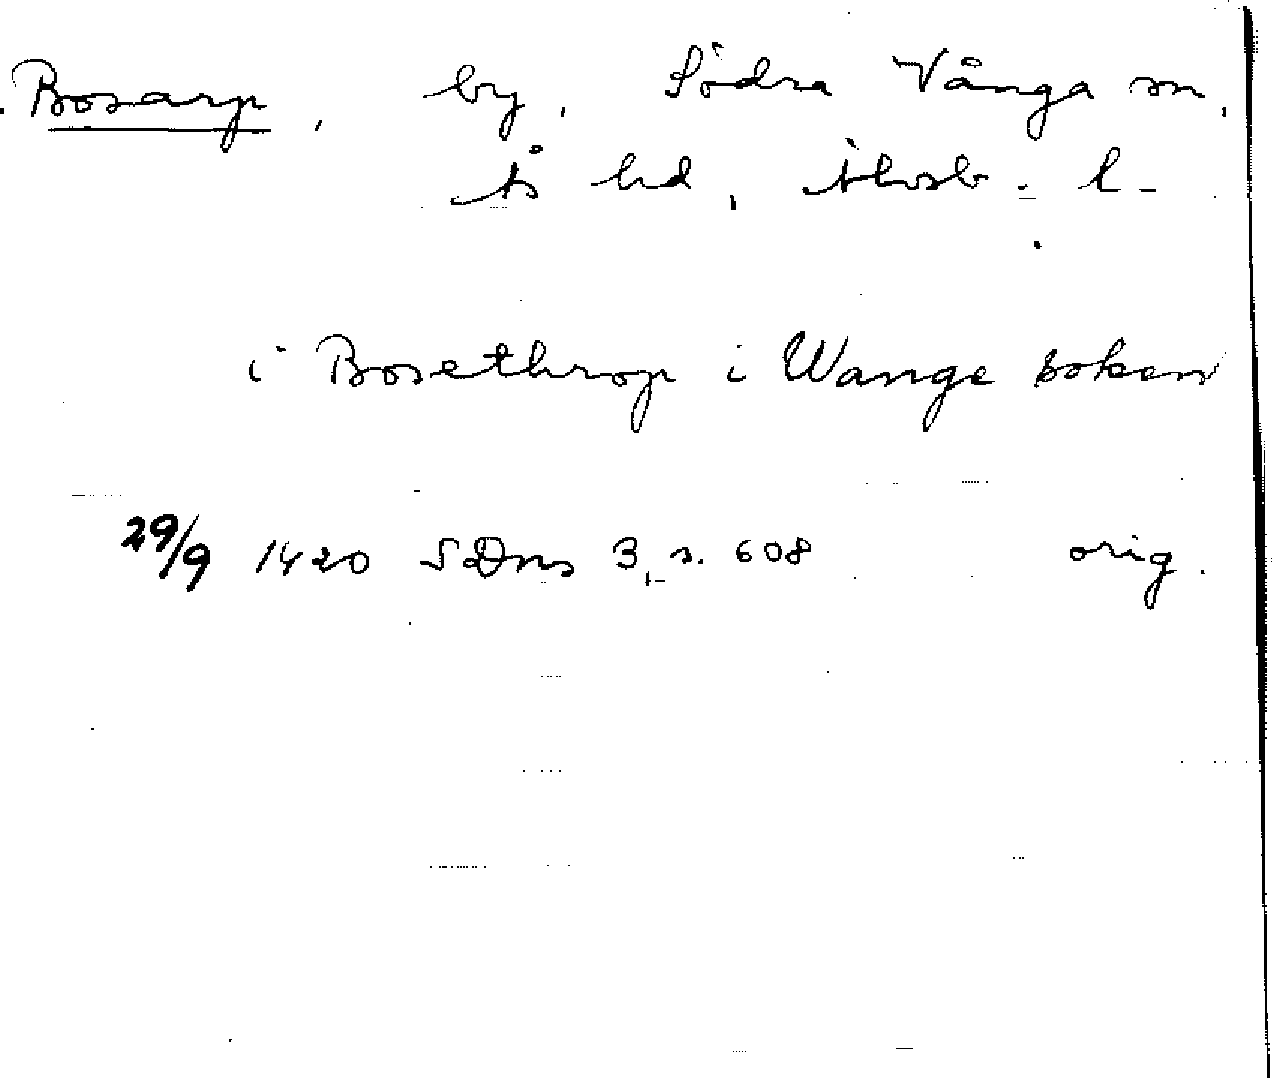 Bosarp, by, Södra Vånga sn,
Ås hd, Älvsb. l.
i Bosethrop i Wange soken
29/9 1420 SDns 3, s. 608 orig.